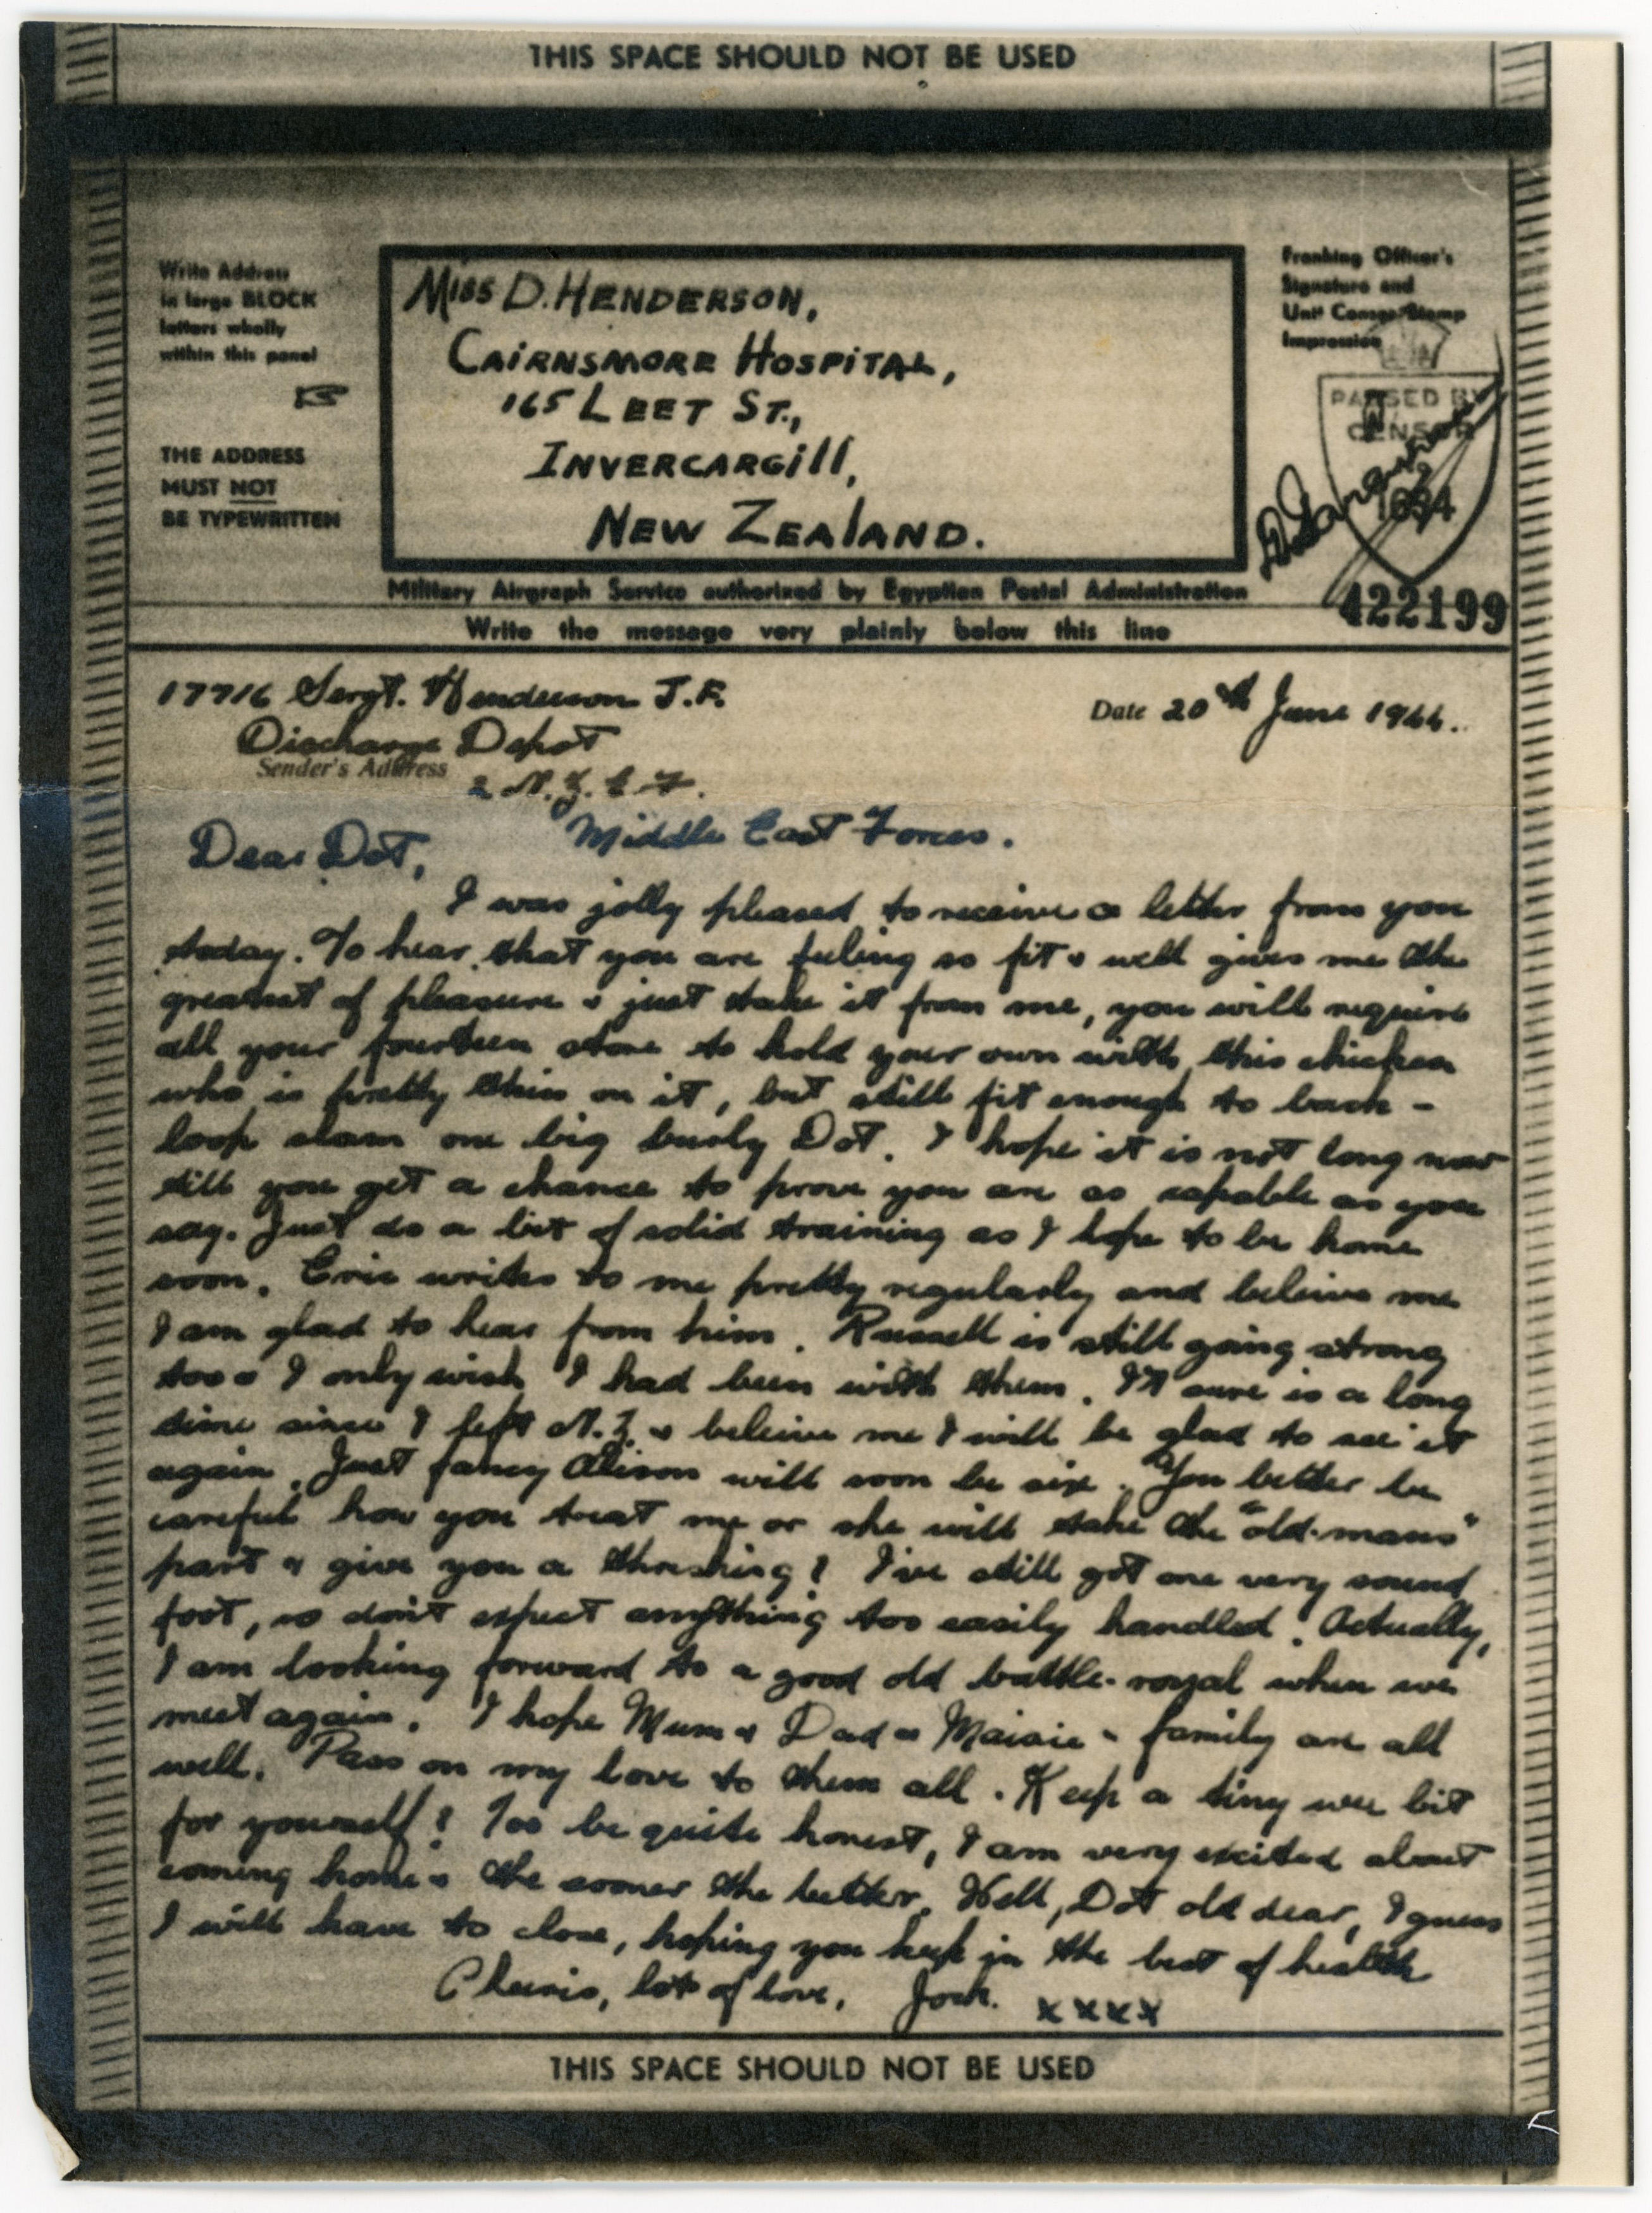 THIS SPACE SHOULD NOT BE USED
Write Address
in large BLOCK
letters wholly
within this panel
THE ADDRESS
MUST NOT
BE TYPEWRITTEN
MISS D. HENDERSON,
CAIRNSMORE HOSPITAL,
165 LEET ST.,
INVERCARGill,
NEW ZEAlAND.
Franking Officer's
Signature and
Unit Censor Stamp
Impression
PASSED BY
CENSOR
1634
422199
Military Airgraph Service authorized by Egyptian Postal Administration
Write the message very plainly below this line
17716 Sergt. Henderson J.F.
Date 20th June 1944.
Discharge Depot
Sender's Address
2 N.Z.E.F.
Middle East Forces.
Dear Dot,
I was jolly pleased to receive a letter from you
today. To hear that you are feeling so fit & well gives me the
greatest of pleasure & just take it from me, you will require
all your fourteen stone to hold your own with this chicken
who is pretty thin on it, but still fit enough to back -
loop slam one big burly Dot. I hope it is not long now
till you get a chance to prove you are as capable as you
say. Just do a bit of solid training as I hope to be home
soon. Eric writes to me pretty regularly and beleive me
I am glad to hear from him. Russell is still going strong
too & I only wish I had been with them. It sure is a long
time since I left N.Z. & beleive me I will be glad to see it
again. Just fancy Alison will soon be six. You better be
careful how you treat me or she will take the "old-mans"
part & give you a threshing! I've still got one very sound
foot, so don't expect anything too easily handled. Actually,
I am looking forward to a good old battle-royal when we
meet again. I hope Mum & Dad & Maisie & family are all
well. Pass on my love to them all. Keep a tiny wee bit
for yourself! Too be quite honest, I am very excited about
coming home & the sooner the better. Well, Dot old dear, I guess
I will have to close, hoping you keep in the best of health
Cheerio, lots of love, Jock. xxxx
THIS SPACE SHOULD NOT BE USED